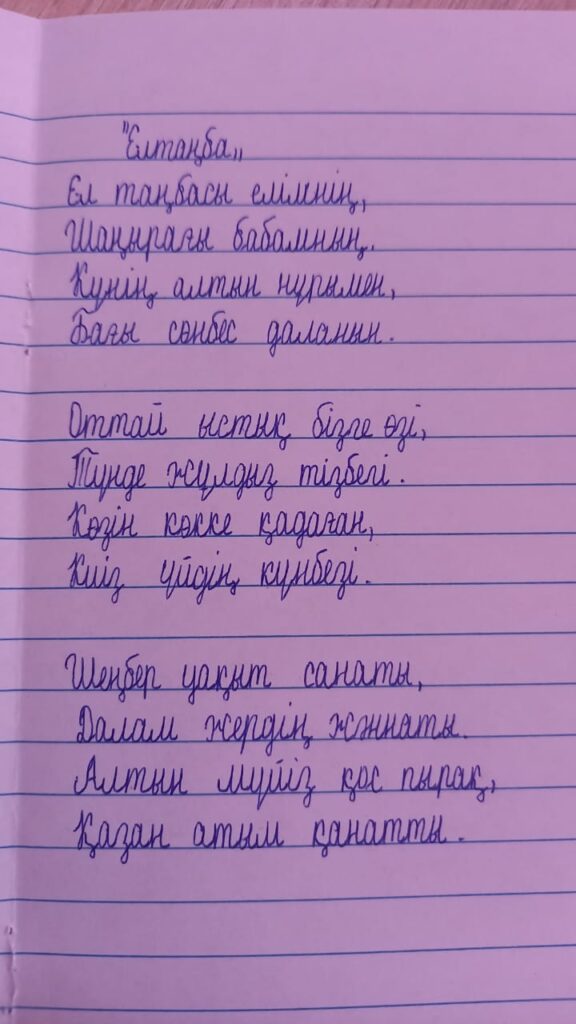 "Елтаңба„
Ел таңбасы елімнің,
Шаңырағы бабамның.
Күнің алтын нұрымен,
Бағы сөнбес даланын.
Оттай ыстық бізге өзі,
Түнде жұлдыз тізбегі.
Көзін көкке қадаған,
Киіз үйдің күнбезі.
Шеңбер уақыт санаты,
Далам жердің жәннаты.
Алтын мүйіз қос пырақ,
Қазан атым қанатты.